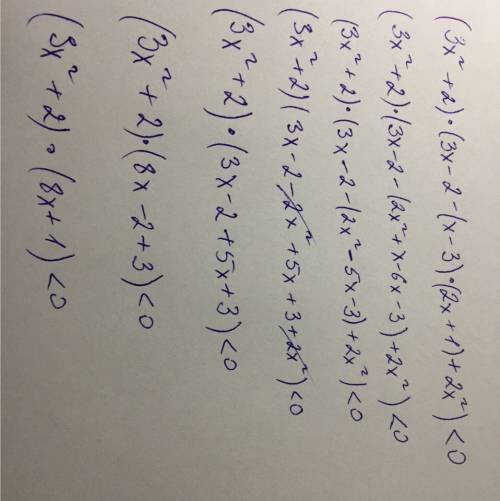 (3x² + 2)·(3x - 2 - (x - 3)·(2x + 1) + 2x²) < 0
(3x² + 2)·(3x - 2 - (2x² + x - 6x - 3) + 2x²) < 0
(3x² + 2)·(3x - 2 - (2x² - 5x - 3) + 2x²) < 0
(3x² + 2)(3x - 2 - 2x² + 5x + 3 + 2x²) < 0
(3x² + 2)·(3x - 2 + 5x + 3) < 0
(3x² + 2)·(8x - 2 + 3) < 0
(3x² + 2)·(8x + 1) < 0